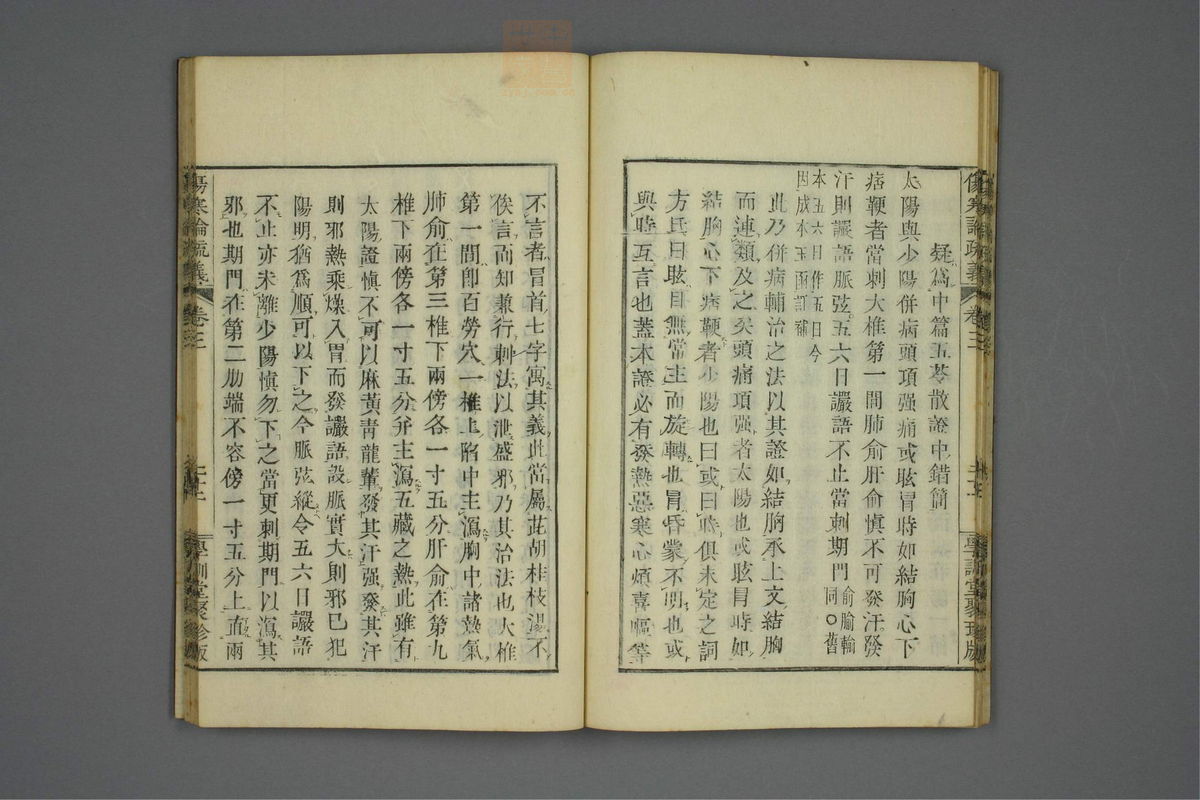 疑爲中篇五苓散證中錯簡
太陽與少陽併病頭項强痛或眩冒時如結胸心下
痞鞕者當刺大椎第一間肺俞肝俞愼不可發汗發
汗則讝語脈弦五六日讝語不止當刺期門俞腧輸同〇舊
本五六日作五日今
因成本玉函訂補
此乃併病輔治之法以其證如結胸承上文結胸
而連類及之矣頭痛項强者太陽也或眩冒時如
結胸心下痞鞕者少陽也曰或曰時俱未定之詞
方氏曰眩目無常主而旋轉也冒昏蒙不明也或
與時互言也蓋本證必有發熱惡寒心煩喜嘔等
不言者冒首七字寓其義此當屬茈胡桂枝湯不
俟言而知兼行刺法以泄盛邪乃其治法也大椎
第一間卽百勞穴一椎上陷中主瀉胸中諸熱氣
肺俞在第三椎下兩傍各一寸五分肝俞在第九
椎下兩傍各一寸五分幷主瀉五藏之熱此雖有
太陽證愼不可以麻黃青龍輩發其汗强發其汗
則邪熱乘燥入胃而發讝語設脈實大則邪已犯
陽明猶爲順可以下之今脈弦縱令五六日讝語
不止亦未離少陽愼勿下之當更刺期門以瀉其
邪也期門在第二肋端不容傍一寸五分上直兩
傷寒論疏義
卷三
學訓堂聚珍版